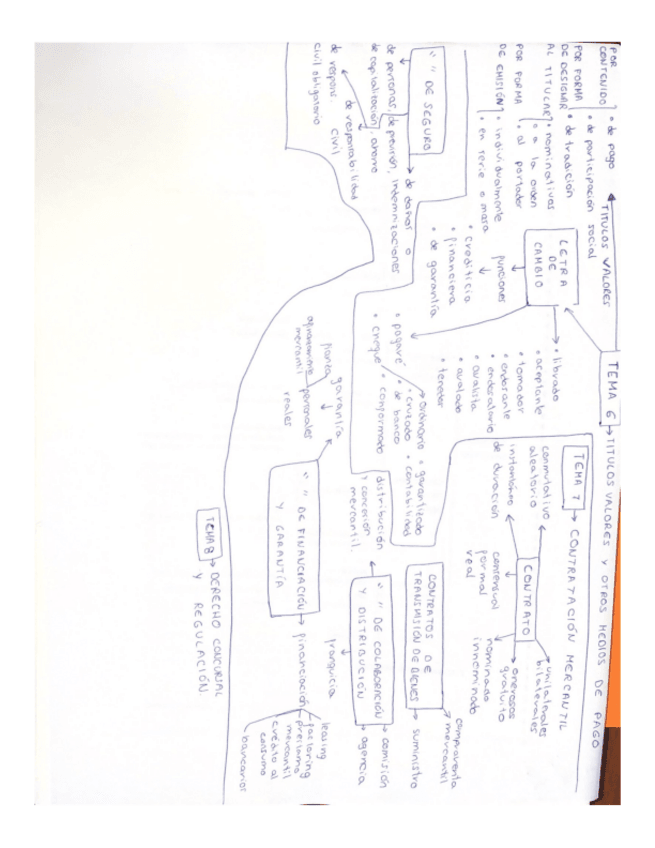 TEMA 6 → TITULOS VALORES Y OTROS MEDIOS DE PAGO
TITULOS VALORES
POR CONTENIDO
• de pago
• de participación social
• de tradición
POR FORMA DE DESIGNAR AL TITULAR
• nominativos
• a la orden
• al portador
POR FORMA DE EMISIÓN
• individualmente
• en serie o masa
LETRA DE CAMBIO
funciones
• crediticia
• financiera
• de garantía
• librado
• aceptante
• tomador
• endosante
• endosatario
• avalista
• avalado
• tenedor
• pagaré
• cheque
• ordinario
• cruzado
• de banco
• conformado
• garantizado
• contabilidad
TEMA 7 → CONTRATACIÓN MERCANTIL
CONTRATO
unilaterales
bilaterales
onerosos
gratuito
nominado
innominado
consensual
formal
real
instantáneo
de duración
conmutativo
aleatorio
CONTRATOS DE TRANSMISIÓN DE BIENES
compraventa mercantil
suministro
" " DE COLABORACIÓN Y DISTRIBUCIÓN
comisión
agencia
franquicia
distribución y concesión mercantil
" " DE FINANCIACIÓN Y GARANTÍA
financiación
leasing
factoring
prestamo mercantil
credito al consumo
bancarios
garantía
personales
reales
fianza
mercantil
" " DE SEGURO
de daños o indemnizaciones
de personas, de previsión,
de capitalización, ahorro
de responsabilidad civil
de respons. civil obligatorio
TEMA 8 → DERECHO CONCURSAL Y REGULACIÓN